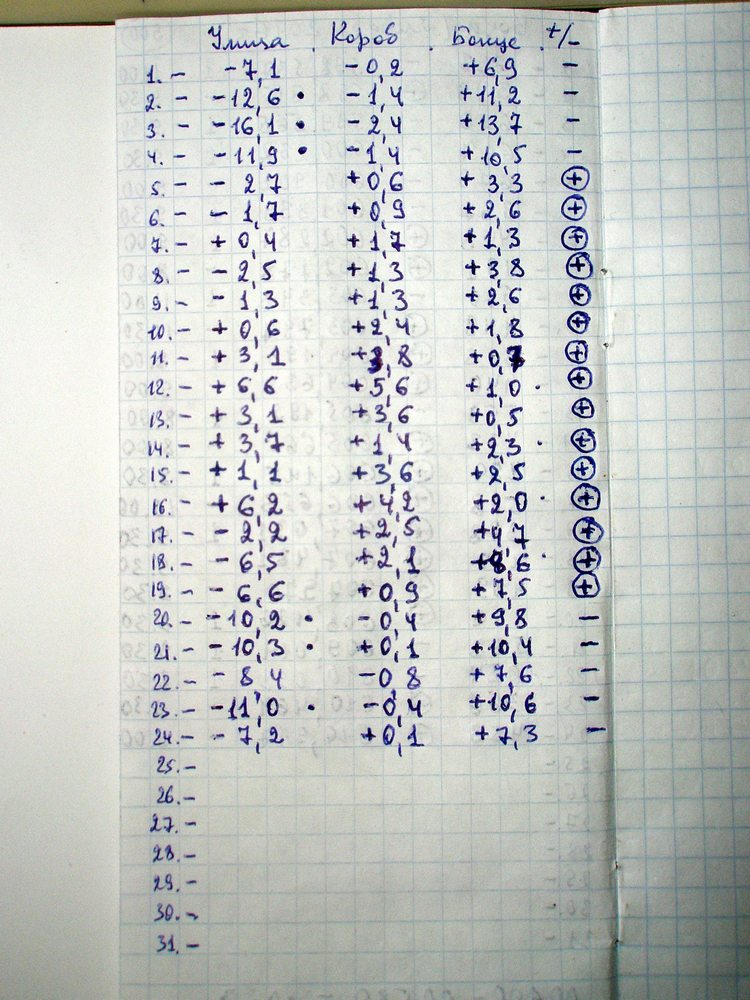 Улица. Короб. Бонце. +/-
1. - -7,1 -0,2 +6,9 -
2. - -12,6 • -1,4 +11,2 -
3. - -16,1 • -2,4 +13,7 -
4. - -11,9 • -1,4 +10,5 -
5. - -2,7 +0,6 +3,3 ⊕
6. - -1,7 +0,9 +2,6 ⊕
7. - +0,4 +1,7 +1,3 ⊕
8. - -2,5 +1,3 +3,8 ⊕
9. - -1,3 +1,3 +2,6 ⊕
10. - +0,6 +2,4 +1,8 ⊕
11. - +3,1 +3,8 +0,7 ⊕
12. - +6,6 +5,6 +1,0 • ⊕
13. - +3,1 +3,6 +0,5 ⊕
14. - +3,7 +1,4 +2,3 • ⊕
15. - +1,1 +3,6 +2,5 ⊕
16. - +6,2 +4,2 +2,0 • ⊕
17. - -2,2 +2,5 +4,7 ⊕
18. - -6,5 +2,1 +8,6 • ⊕
19. - -6,6 +0,9 +7,5 ⊕
20. - -10,2 • -0,4 +9,8 -
21. - -10,3 • +0,1 +10,4 -
22. - -8,4 -0,8 +7,6 -
23. - -11,0 • -0,4 +10,6 -
24. - -7,2 +0,1 +7,3 -
25. -
26. -
27. -
28. -
29. -
30. -
31. -